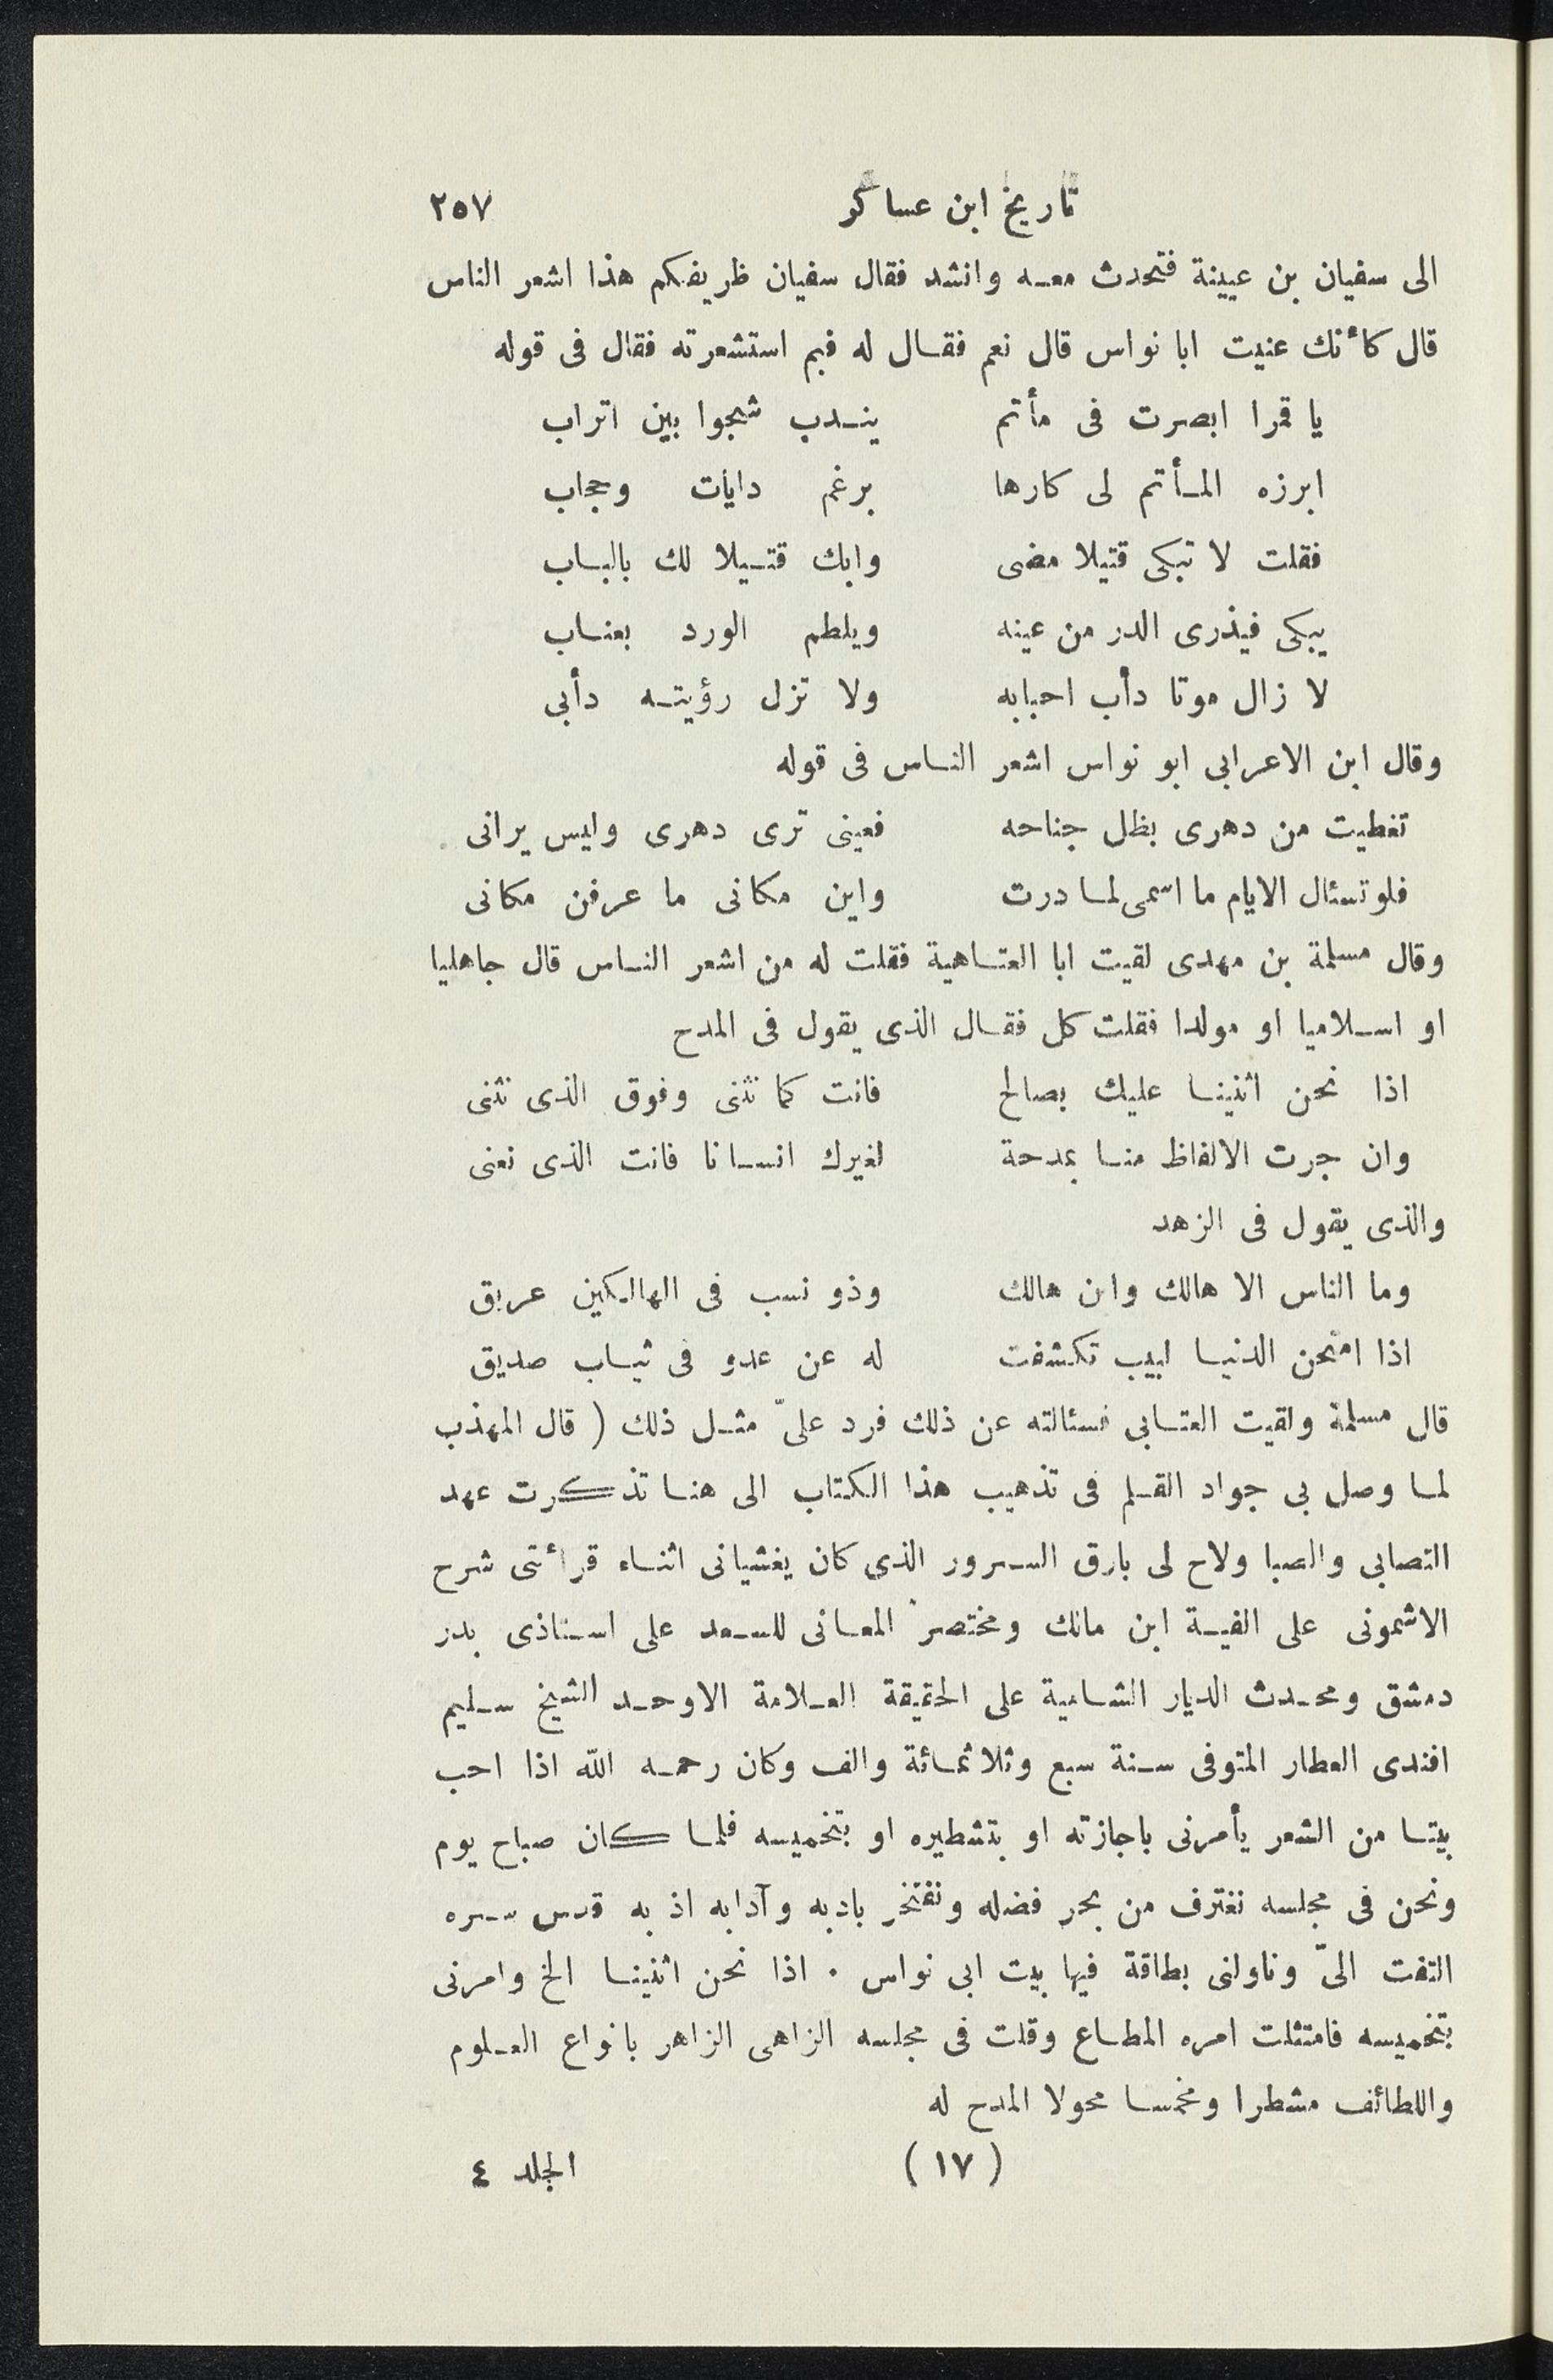 تاريخ ابن عساكر ٢٥٧
الى سفيان بن عيينة فتحدث معه وانشد فقال سفيان ظريفكم هذا اشعر الناس
قال كأنك عنيت ابا نواس قال نعم فقال له فبم استشعرته فقال فى قوله
يا قمرا ابصرت فى مأتم يندب شجوا بين اتراب
ابرزه المأتم لى كارها برغم دايات وحجاب
فقلت لا تبكى قتيلا مضى وابك قتيلا لك بالباب
يبكى فيذرى الدر من عينه ويلطم الورد بعناب
لا زال موتا دأب احبابه ولا تزل رؤيته دأبى
وقال ابن الاعرابى ابو نواس اشعر الناس فى قوله
تغطيت من دهرى بظل جناحه فعينى ترى دهرى وليس يرانى
فلو تسئال الايام ما اسمى لما درت واين مكانى ما عرفن مكانى
وقال مسلمة بن مهدى لقيت ابا العتاهية فقلت له من اشعر الناس قال جاهليا
او اسلاميا او مولدا فقلت كل فقال الذى يقول فى المدح
اذا نحن اثنينا عليك بصالح فانت كما نثنى وفوق الذى نثنى
وان جرت الالفاظ منا بمدحة لغيرك انسانا فانت الذى نعنى
والذى يقول فى الزهد
وما الناس الا هالك وابن هالك وذو نسب فى الهالكين عريق
اذا امتحن الدنيا لبيب تكشفت له عن عدو فى ثياب صديق
قال مسلمة ولقيت العتابى فسئالته عن ذلك فرد علىّ مثل ذلك ( قال المهذب
لما وصل بى جواد القلم فى تذهيب هذا الكتاب الى هنا تذكرت عهد
التصابى والصبا ولاح لى بارق السرور الذى كان يغشيانى اثناء قرأتى شرح
الاشمونى على الفية ابن مالك ومختصر المعانى للسعد على استاذى بدر
دمشق ومحدث الديار الشامية على الحقيقة العلامة الاوحد الشيخ سليم
افندى العطار المتوفى سنة سبع وثلاثمائة والف وكان رحمه الله اذا احب
بيتا من الشعر يأمرنى باجازته او بتشطيره او بتخميسه فلما كان صباح يوم
ونحن فى مجلسه نغترف من بحر فضله ونفتخر بادبه وآدابه اذ به قدس سره
التفت الىّ وناولنى بطاقة فيها بيت ابى نواس . اذا نحن اثنينا الخ وامرنى
بتخميسه فامتثلت امره المطاع وقلت فى مجلسه الزاهى الزاهر بانواع العلوم
واللطائف مشطرا ومخمسا محولا المدح له
( ١٧ ) الجلد ٤